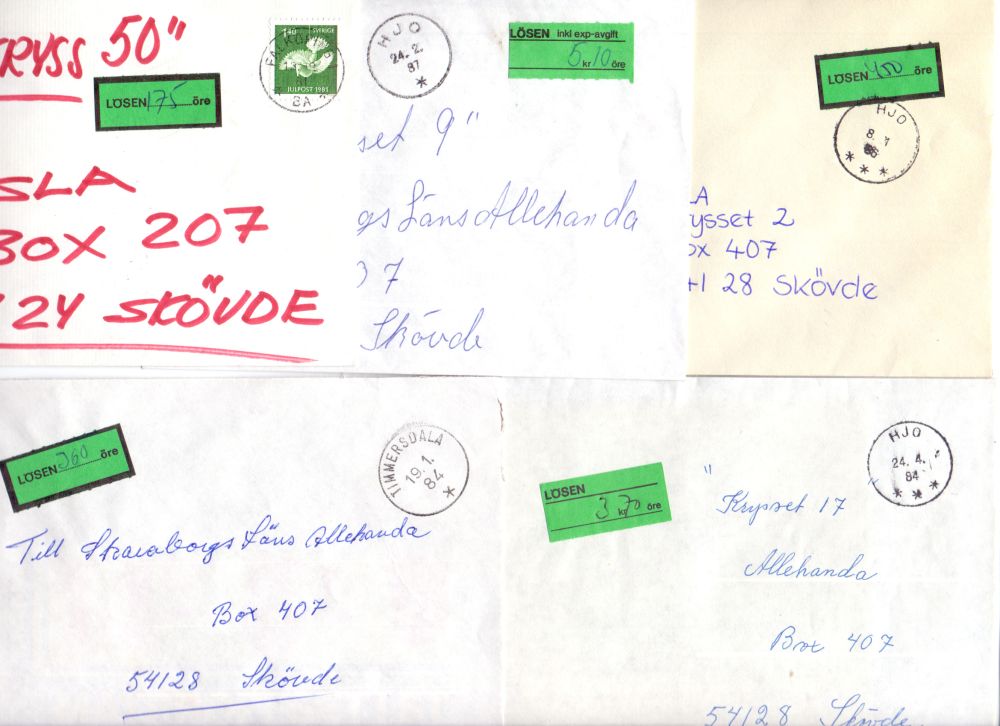 RYSS 50"
LÖSEN 175 öre
140 SVERIGE
JULPOST 1981
BA
SLA
BOX 207
24 SKÖVDE
HJO
24. 2.
87
*
LÖSEN inkl exp-avgift
5 kr 10 öre
set 9"
gs Läns Allehanda
07
Skövde
LÖSEN 400 öre
HJO
8. 1
86
* * *
LA
rysset 2
ox 407
41 28 Skövde
LÖSEN 360 öre
TIMMERSDALA
19. 1.
84
*
Till Skaraborgs Läns Allehanda
Box 407
54128 Skövde
LÖSEN
3 kr 70 öre
HJO
24. 4.
84
* * *
"Krysset 17"
Allehanda
Box 407
54128 Skövde